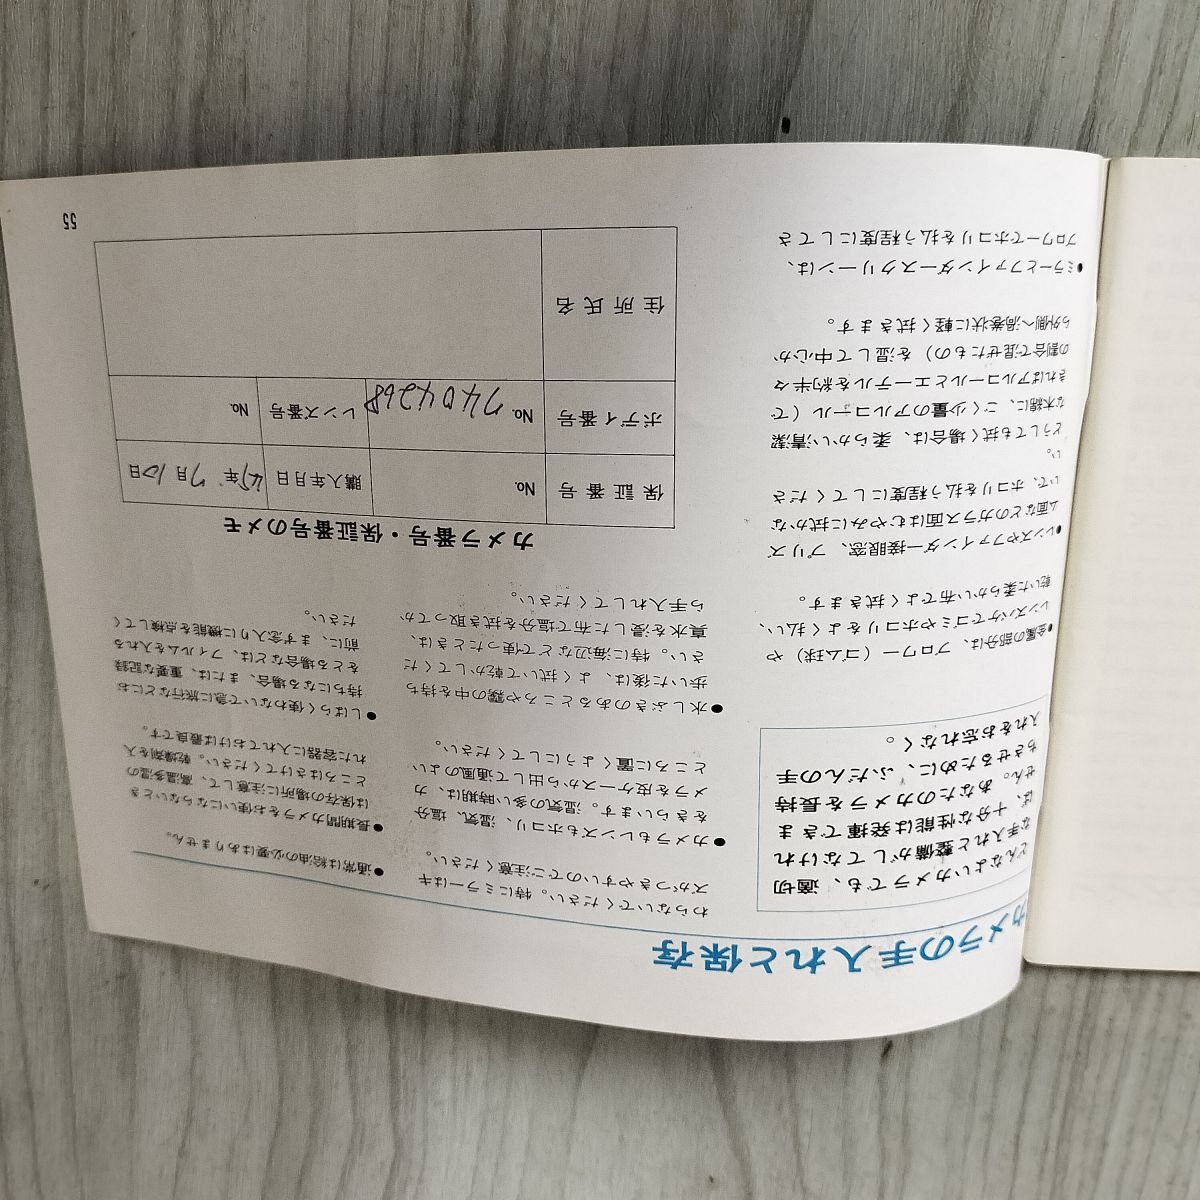 カメラの手入れと保存
どんなよいカメラでも、適切
な手入れと整備がしてなけれ
ば、十分な性能は発揮できま
せん。あなたのカメラを長持
ちさせるために、ふだんの手
入れをお忘れなく。
●金属の部分は、ブロワー（ゴム球）や
レンズハケでゴミやホコリをよく払い、
乾いた柔らかい布でよく拭きます。
●レンズやファインダー接眼窓、プリズ
ム面などのガラス面はむやみに拭かな
いで、ホコリを払う程度にしてくださ
い。
どうしても拭く場合は、柔らかい清潔
な木綿に、ごく少量のアルコール（で
きればアルコールとエーテルを約半々
の割合で混ぜたもの）を湿して中心か
ら外側へ渦巻状に軽く拭きます。
●ミラーとファインダースクリーンは、
ブロワーでホコリを払う程度にしてさ
わらないでください。特にミラーはキ
ズがつきやすいのでご注意ください。
●カメラもレンズもホコリ、湿気、塩分
をきらいます。湿気の多い時期は、カ
メラを皮ケースから出して通風のよい
ところに置くようにしてください。
●水しぶきのあるところや霧の中を持ち
歩いた後は、よく拭いて乾かしてくだ
さい。特に海辺などで使ったときは、
真水を浸した布で塩分を拭き取ってか
ら手入れしてください。
●通常は給油の必要はありません。
●長期間カメラをお使いにならないとき
は保存の場所に注意して、高温多湿の
ところはさけてください。乾燥剤を入
れた容器に入れておけば最良です。
●しばらく使わないで急に旅行などにお
持ちになる場合、または、重要な記録
をとる場合などは、フィルムを入れる
前に、まず念入りに機能を点検して
ください。
カメラ番号・保証番号のメモ
保証番号 No. 購入年月日 45年 7月 10日
ボディ番号 No. 7404268 レンズ番号 No.
住所氏名
55